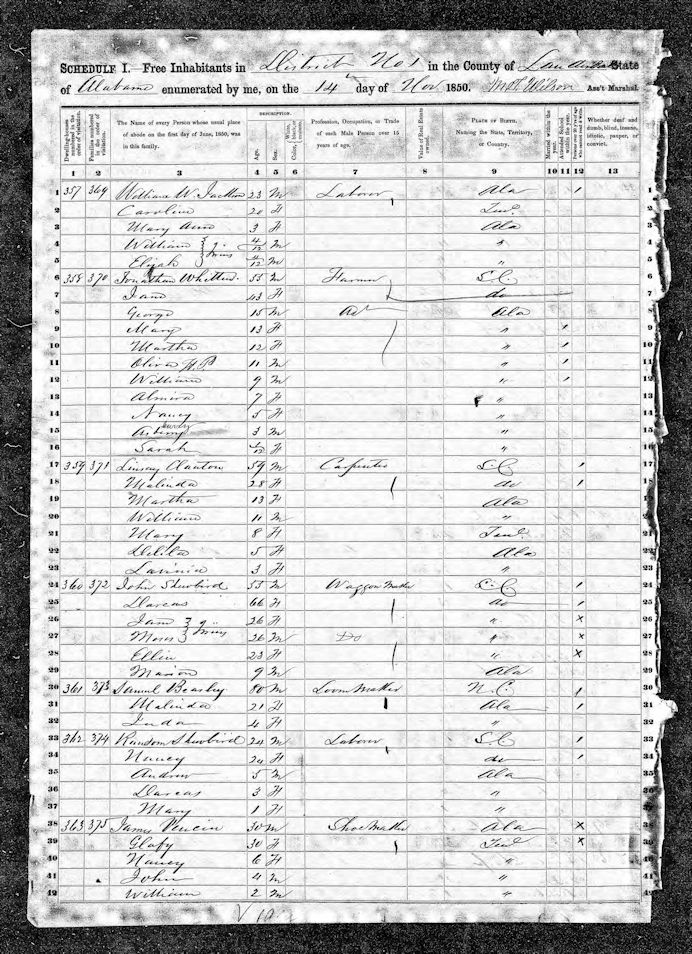 SCHEDULE I. Free Inhabitants in District No 1 in the County of State
of Alabama enumerated by me, on the 14th day of Nov 1850. Wilson Ass't Marshal.
Dwelling-houses numbered in the order of visitation.
Families numbered in the order of visitation.
The Name of every Person whose usual place of abode on the first day of June, 1850, was in this family.
DESCRIPTION.
Age.
Sex.
Color, White, black, or mulatto.
Profession, Occupation, or Trade of each Male Person over 15 years of age.
Value of Real Estate owned.
PLACE OF BIRTH.
Naming the State, Territory, or Country.
Married within the year.
Attended School within the year.
Persons over 20 y'rs of age who cannot read & write.
Whether deaf and dumb, blind, insane, idiotic, pauper, or convict.
1 2 3 4 5 6 7 8 9 10 11 12 13
1 357 369 William W. Jackson 23 M Laborer Ala / 1
2 Caroline 20 F Tenn 2
3 Mary Ann 3 F Ala 3
4 William 4/12 M " 4
5 Elijah twins 4/12 M " 5
6 358 370 Jonathan 55 M Farmer S.C 6
7 Jane 43 F do 7
8 George 15 M do Ala 8
9 Mary 13 F " / 9
10 Martha 12 F " / 10
11 Oliver H.P 11 M " / 11
12 William 9 M " / 12
13 Almira 7 F " 13
14 Nancy 5 F " 14
15 Asberry 3 M " 15
16 Sarah /12 F " 16
17 359 371 Linsey Clanton 59 M Carpenter S.C / 17
18 Malinda 28 F do / 18
19 Martha 13 F Ala 19
20 William 11 M " 20
21 Mary 8 F Tenn 21
22 Delila 5 F Ala 22
23 Lavinia 3 F " 23
24 360 372 John Shewbird 55 M Waggon Maker S.C / 24
25 Darcas 66 F do / 25
26 Jane 26 F " x 26
27 Moses twins 26 M Do " x 27
28 Ellin 23 F " x 28
29 Marion 9 M Ala 29
30 361 373 Samuel Beasley 80 M Loom Maker N.C / 30
31 Malinda 21 F Ala / 31
32 Juda 4 F " 32
33 362 374 Ransom Shewbird 24 M Laborer S.C / 33
34 Nancy 24 F do / 34
35 Andrew 5 M Ala 35
36 Darcas 3 F " 36
37 Mary 1 F " 37
38 363 375 James 30 M Shoe Maker Ala x 38
39 Glafy 30 F Tenn x 39
40 Nancy 6 F " 40
41 John 4 M " 41
42 William 2 M " 42